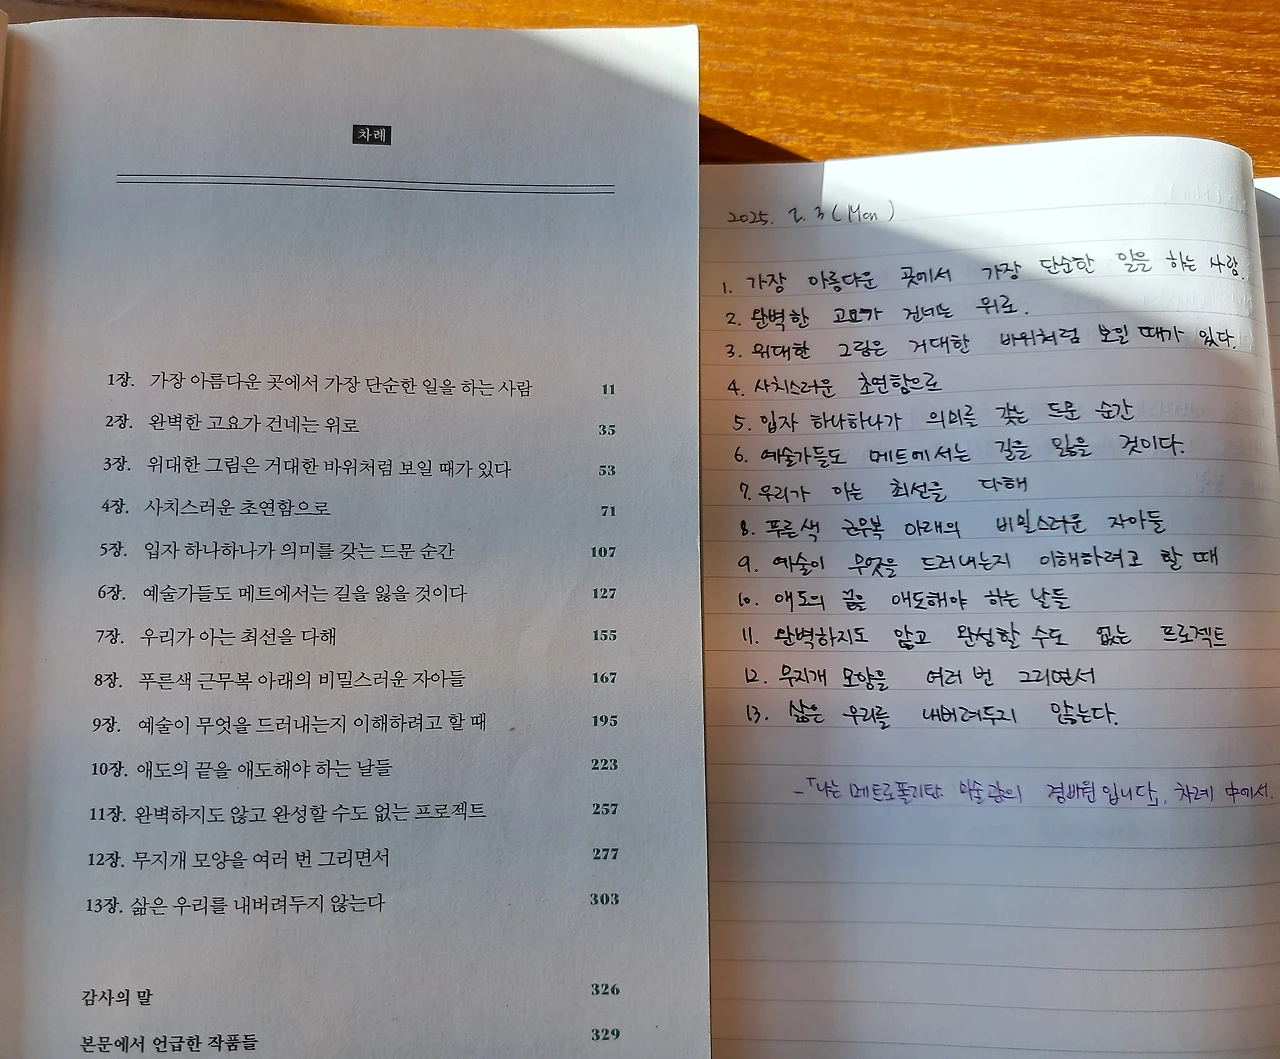 차례
1장. 가장 아름다운 곳에서 가장 단순한 일을 하는 사람 11
2장. 완벽한 고요가 건네는 위로 35
3장. 위대한 그림은 거대한 바위처럼 보일 때가 있다 53
4장. 사치스러운 초연함으로 71
5장. 입자 하나하나가 의미를 갖는 드문 순간 107
6장. 예술가들도 메트에서는 길을 잃을 것이다 127
7장. 우리가 아는 최선을 다해 155
8장. 푸른색 근무복 아래의 비밀스러운 자아들 167
9장. 예술이 무엇을 드러내는지 이해하려고 할 때 195
10장. 애도의 끝을 애도해야 하는 날들 223
11장. 완벽하지도 않고 완성할 수도 없는 프로젝트 257
12장. 무지개 모양을 여러 번 그리면서 277
13장. 삶은 우리를 내버려두지 않는다 303
감사의 말 326
본문에서 언급한 작품들 329
2025. 2. 3 (Mon)
1. 가장 아름다운 곳에서 가장 단순한 일을 하는 사람.
2. 완벽한 고요가 건네는 위로.
3. 위대한 그림은 거대한 바위처럼 보일 때가 있다.
4. 사치스러운 초연함으로
5. 입자 하나하나가 의미를 갖는 드문 순간
6. 예술가들도 메트에서는 길을 잃을 것이다.
7. 우리가 아는 최선을 다해
8. 푸른색 근무복 아래의 비밀스러운 자아들
9. 예술이 무엇을 드러내는지 이해하려고 할 때
10. 애도의 끝을 애도해야 하는 날들
11. 완벽하지도 않고 완성할 수도 없는 프로젝트
12. 무지개 모양을 여러 번 그리면서
13. 삶은 우리를 내버려두지 않는다.
-「나는 메트로폴리탄 미술관의 경비원입니다」, 차례 中에서.